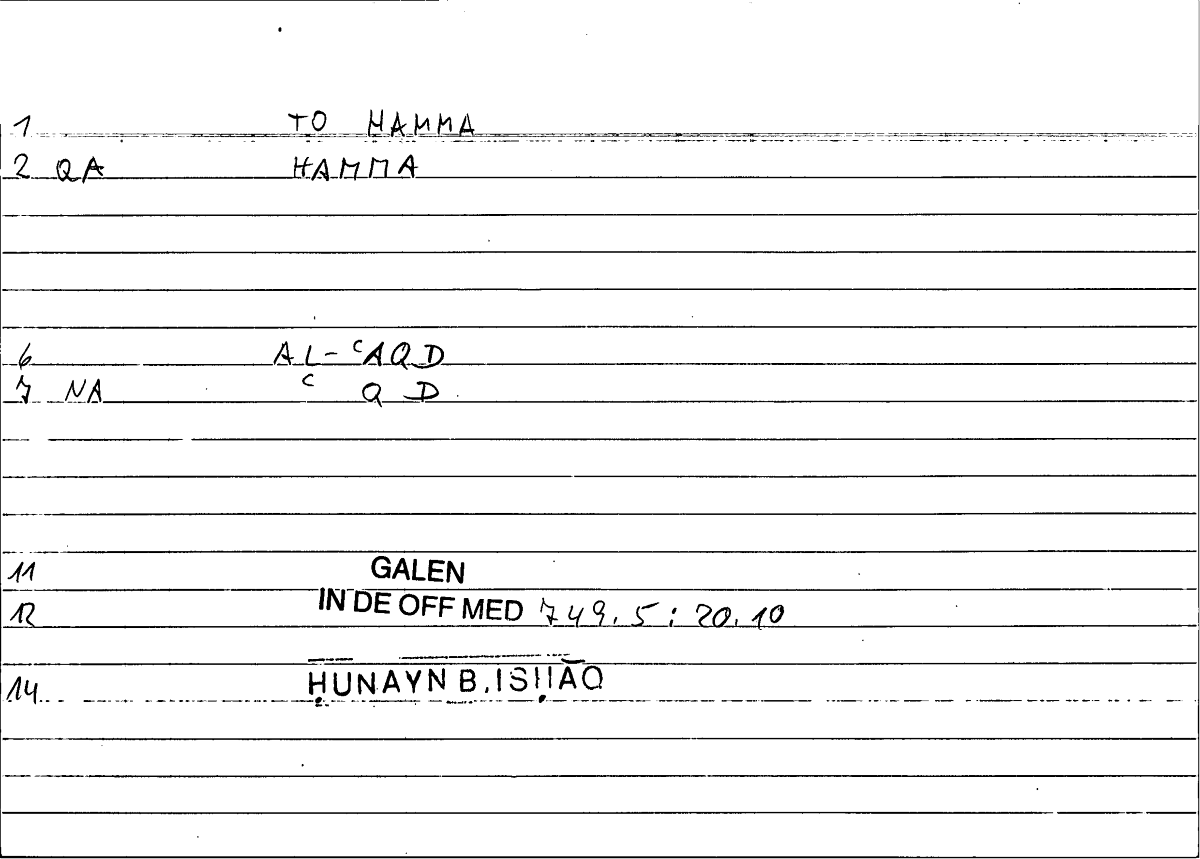 1 TO HAMMA
2 QA HAMMA
6 AL-ʿAQD
7 NA ʿ Q D
11 GALEN
12 IN DE OFF MED 749.5 : 20.10
14 ḤUNAYN B. ISḤĀQ